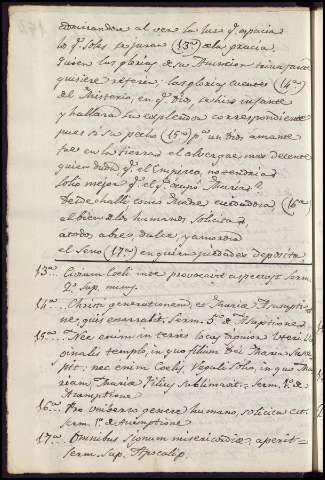 admirandose al ver la luz q. esparcia
lo q. Soles se juran (13.a) de la gracia.
Quien las glorias de su Assuncion
quisiere referir: las glorias cuente (14.a)
del Misterio, en q. Dios, se hizo infante
y hallara su esplendor correspondiente
pues si su pecho (15.a) p.a un Dios amante
fue en la tierra el alvergue, mas decente
quien duda q. el Empireo, no tendria
Solio mejor q. el q. ocupo Maria?
Desde el alto como Madre cuidadora (16.a)
al bien de los humanos solicita
a todos abre, dulce, y amorosa
el Seno (17.a) en quien piedades deposita
13.a Civium Coeli in te provocavit aspectus Serm.
2.o Sup. missus
14.a Christi generationem, et Mariae Assumptio-
nem, quis enarrabit. Serm. 1.o de Assumptione
15.a Nec enim in terris locus dignior Uteri Vir-
ginalis templo, in quo filium Dei Maria susce-
pit: nec enim Coelis, Regali solio, in quo Ma-
riam, Mariae Filius sublimavit. Serm. 1.o de
Assumptione
16.a Pro universo genere humano, solicita est.
Serm. 1.o de Assumptione
17.a Omnibus sinum misericordiae, aperit
Serm. sup. Apocalip.